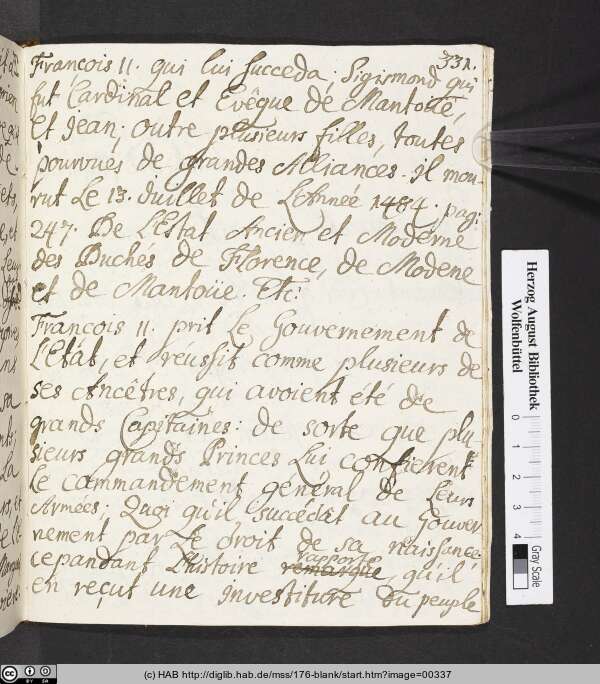 331.
François II. qui lui succeda; Sigismond qui
fut Cardinal et Evêque de Mantoüe,
et Jean; outre plusieurs filles, toutes
pourvues de grandes Alliances. il mou-
rut Le 13. Juillet de LeAnnée 1484. pag:
247. De L'Estat Ancien et Moderne
des Duchés de Florence, de Modene
et de Mantoüe. Etc:
François II. prit Le Gouvernement de
L'Etât, et réussit comme plusieurs de
ses Ancêtres, qui avoient été de
grands Capitaines: de sorte que plu
sieurs grands Princes Lui confierent
le commandement general de Leurs
Armées; Quoi qu'il succedât au Gouver
nement par Le droit de sa naissance
cependant L'histoire remarque rapporte, qu'il
en reçut une investiture du peuple
Herzog August Bibliothek
Wolfenbüttel
0 1 2 3 4
Gray Scale
cc BY SA
(c) HAB http://diglib.hab.de/mss/176-blank/start.htm?image=00337